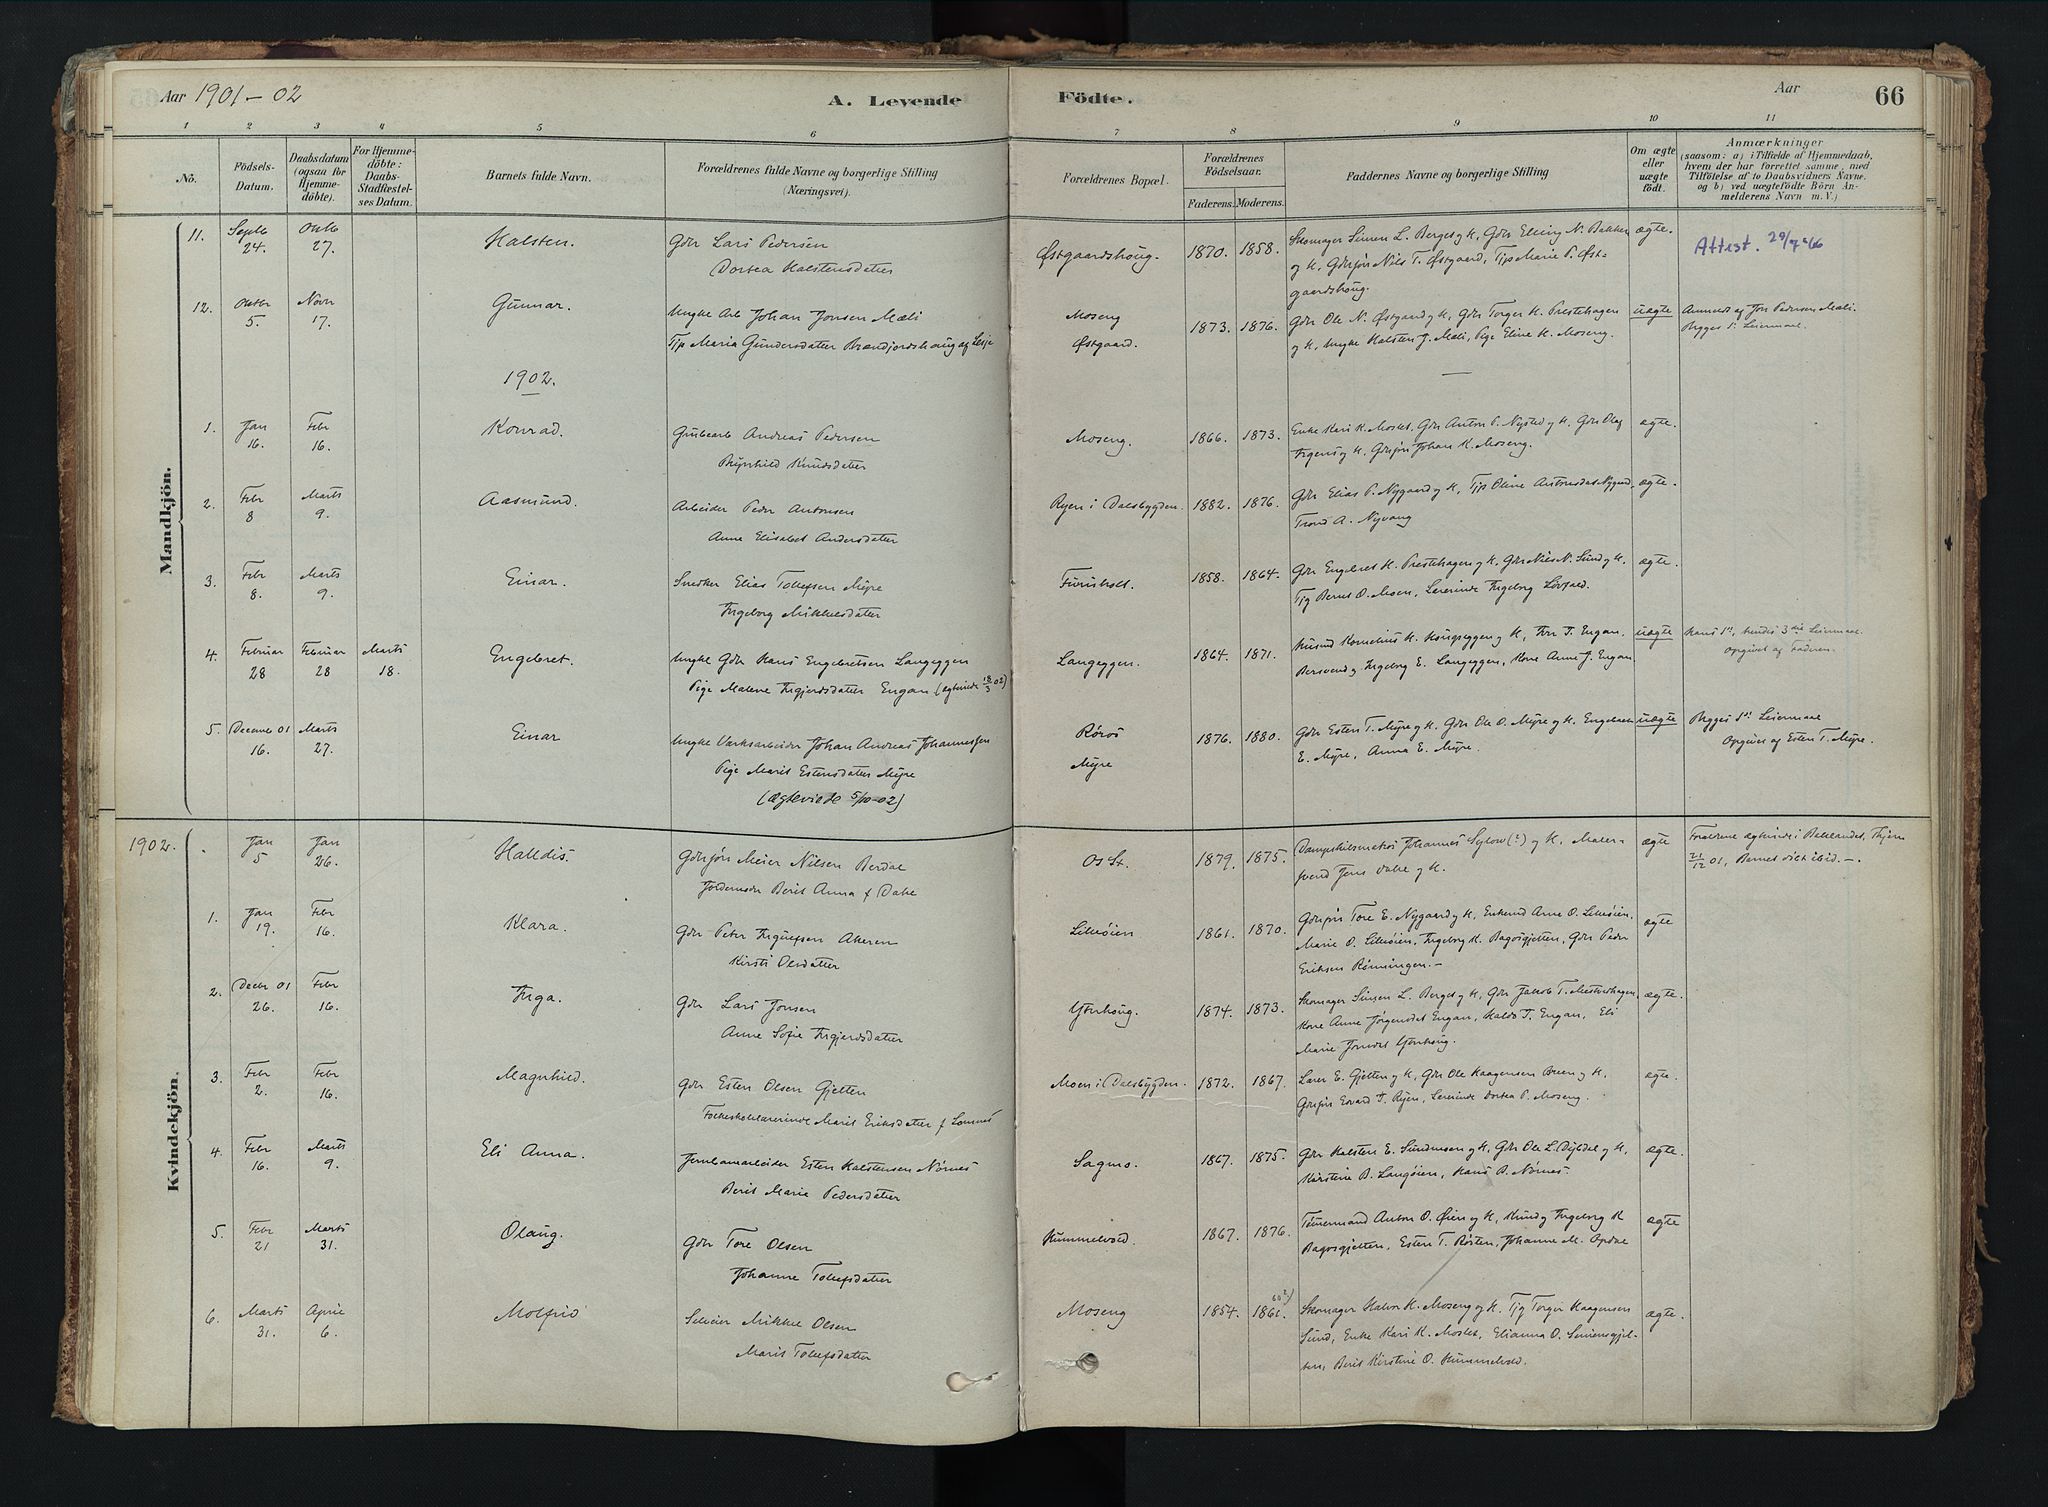 Aar 1901-02
A. Levende
Födte.
Aar
66
1 2 3 4 5 6 7 8 9 10 11
No.
Födsels-Datum.
Daabsdatum (ogsaa for Hjemmedöbte).
For Hjemmedöbte: Daabs-Stadfæstelses Datum.
Barnets fulde Navn.
Forældrenes fulde Navne og borgerlige Stilling (Næringsvei).
Forældrenes Bopæl.
Forældrenes Födselsaar.
Faderens. Moderens.
Faddernes Navne og borgerlige Stilling
Om ægte eller uægte födt.
Anmærkninger
(saasom: a) i Tilfælde af Hjemmedaab,
hvem der har forrettet samme, med
Tilföielse af to Daabsvidners Navne,
og b) ved uægtefödte Börn Anmelderens Navn m. V.)
Mandkjön.
11. Septb 24. Oktb 27. Halsten. Gbr Lars Pedersen
Dortea Halstensdatter
Østgaardshoug. 1870. 1858. Skomager Simen L. Berget og H, Gbr Elling N. Bakken
og H, Gbrsøn Nils T. Østgaard, Tjp Marie P. Øst-
gaardshoug.
ægte.
Attest. 29/7 66
12. Oktbr 5. Novr 17. Gunnar. Ungk Arb Johan Jonsen Mæli
Tjp Maria Gundersdatter Brændjordshoug af Lesje
Moseng
Østgaard. 1873. 1876. Gbr Ole N. Østgaard og H, Gbr Torger H. Prestehagen
og H, Ungk Halsten J. Mæli, Pige Eline H. Moseng.
uægte
Anmeldt af Jon Pedersen Mæli.
Begges 1. Leiermaal.
1902.
1. Jan 16. Febr 16. Konrad. Grubearb Andreas Pedersen
Brynhild Knudsdatter
Moseng. 1866. 1873. Enke Kari K. Moslet, Gbr Anton P. Nysted og H, Gbr Olaf
og H, Gbrsøn Johan K. Moseng.
ægte.
2. Febr 8 Marts 9. Aasmund. Arbeider Peder Antonsen
Anne Elisabet Andersdatter
Ryen i Dalsbygden. 1882. 1876. Gbr Elias P. Nygaard og H, Tjp Oline Antonsdat Nygaard,
Trond A. Nyvang
ægte.
3. Febr 8. Marts 9. Einar. Snedker Elias Tollefsen Myre
Ingeborg Mikkelsdatter
Furuholt. 1858. 1864. Gbr Engebret H. Prestehagen og H, Gbr Nils N. Sund og H,
Tjg Bernt O. Moen, Lærerinde Ingeborg
ægte.
4. Februar 28 Februar 28 Marts 18. Engebret. Ungk Gbr Hans Engebretsen Langeggen
Pige Malene Ingjersdatter Engan (ægteviede 18/3 02)
Langeggen. 1864. 1871. Husmd Kornelius H. Haugseggen og H, Iver J. Engan,
Bersvend og Ingeborg E. Langeggen, Kone Anne J. Engan
uægte
Hans 1ste, hendes 3die Leiermaal.
Opgivet af Faderen.
5. Decembr 01 16. Marts 27. Einar Ungk Verksarbeider Johan Andreas Johannessen
Pige Marit Estensdatter Myre
(ægteviede 5/10-02)
Røros
Myre 1876. 1880. Gbr Esten T. Myre og H, Gbr Ole O. Myre og H, Engebret
E. Myre, Anna E. Myre.
uægte
Begges 1ste Leiermaal
Opgivet af Esten T. Myre.
Kvindekjön.
1902. Jan 5 Jan 26. Halldis. Gbrsøn Meier Nilsen Berdal
Jordemoder Berit Anna f Dahl
Os St. 1879. 1875. Johannes Sylow (?) og H, Maler-
svend Jens Dahl og H.
ægte
Forældrene ægteviede i Baklandet, Thjem
21/12 01, Barnet døbt ibid. —.
1. Jan 19. Febr 16. Klara. Gbr Peter Ingulfsen Akeren
Kirsti Olsdatter
Lilleøien 1861. 1870. Gbrsøn Tore E. Nygaard og H, Enkemd Arne O. Lilleøien,
Marie O. Lilleøien, Ingeborg K. Bagosgjetten, Gbr Peder
Eriksen Rønningen. —
ægte
2. Decbr 01 26. Febr 16. Inga. Gbr Lars Jonsen
Anne Sofie Ingjersdatter
Ytrehoug. 1874. 1873. Skomager Simen L. Berget og H, Gbr Jakob T. Mestershagen,
Kone Anne Jørgensdat Engan, Haldo I. Engan, Eli
Marie Jonsdat Ytrehoug.
ægte.
3. Febr 2. Febr 16. Magnhild. Gbr Esten Olsen Gjelten
Folkeskolelærerinde Marit Eriksdatter f Lomnes
Moen i Dalsbygden. 1872. 1867. Lærer E. Gjelten og H, Gbr Ole Haagensen Buen og H,
Gbrsøn Edvard T. Ryen, Lærerinde Dortea P. Moseng.
ægte.
4. Febr 16. Marts 9. Eli Anna. Jernbanearbeider Esten Halstensen Nørnes
Berit Marie Pedersdatter
Sagmo. 1867. 1875. Gbr Halsten E. Sundmoen og H, Gbr Ole L. Dybdal og H,
Kirstine B. Langøien, Hans B. Nørnes.
ægte.
5. Febr 21 Marts 31. Olaug. Gbr Tore Olsen
Johanne Tollefsdatter
Hummelvold. 1867. 1876. Tømermand Anton O. Øien og H, Knud og Ingeborg K
Bagosgjetten, Esten T. Røsten, Johanne M. Opdal
ægte
6. Marts 31. April 6. Molfrid Selveier Mikkel Olsen
Marit Tollefsdatter
Moseng 1854. 1861. 60?) Skomager Halvor H. Moseng og H. Tjg Torger Haagensen
Sund, Enke Kari K. Moslet, Elianna O. Simensgjel-
ten, Berit Kirstine O. Hummelvold.
ægte.